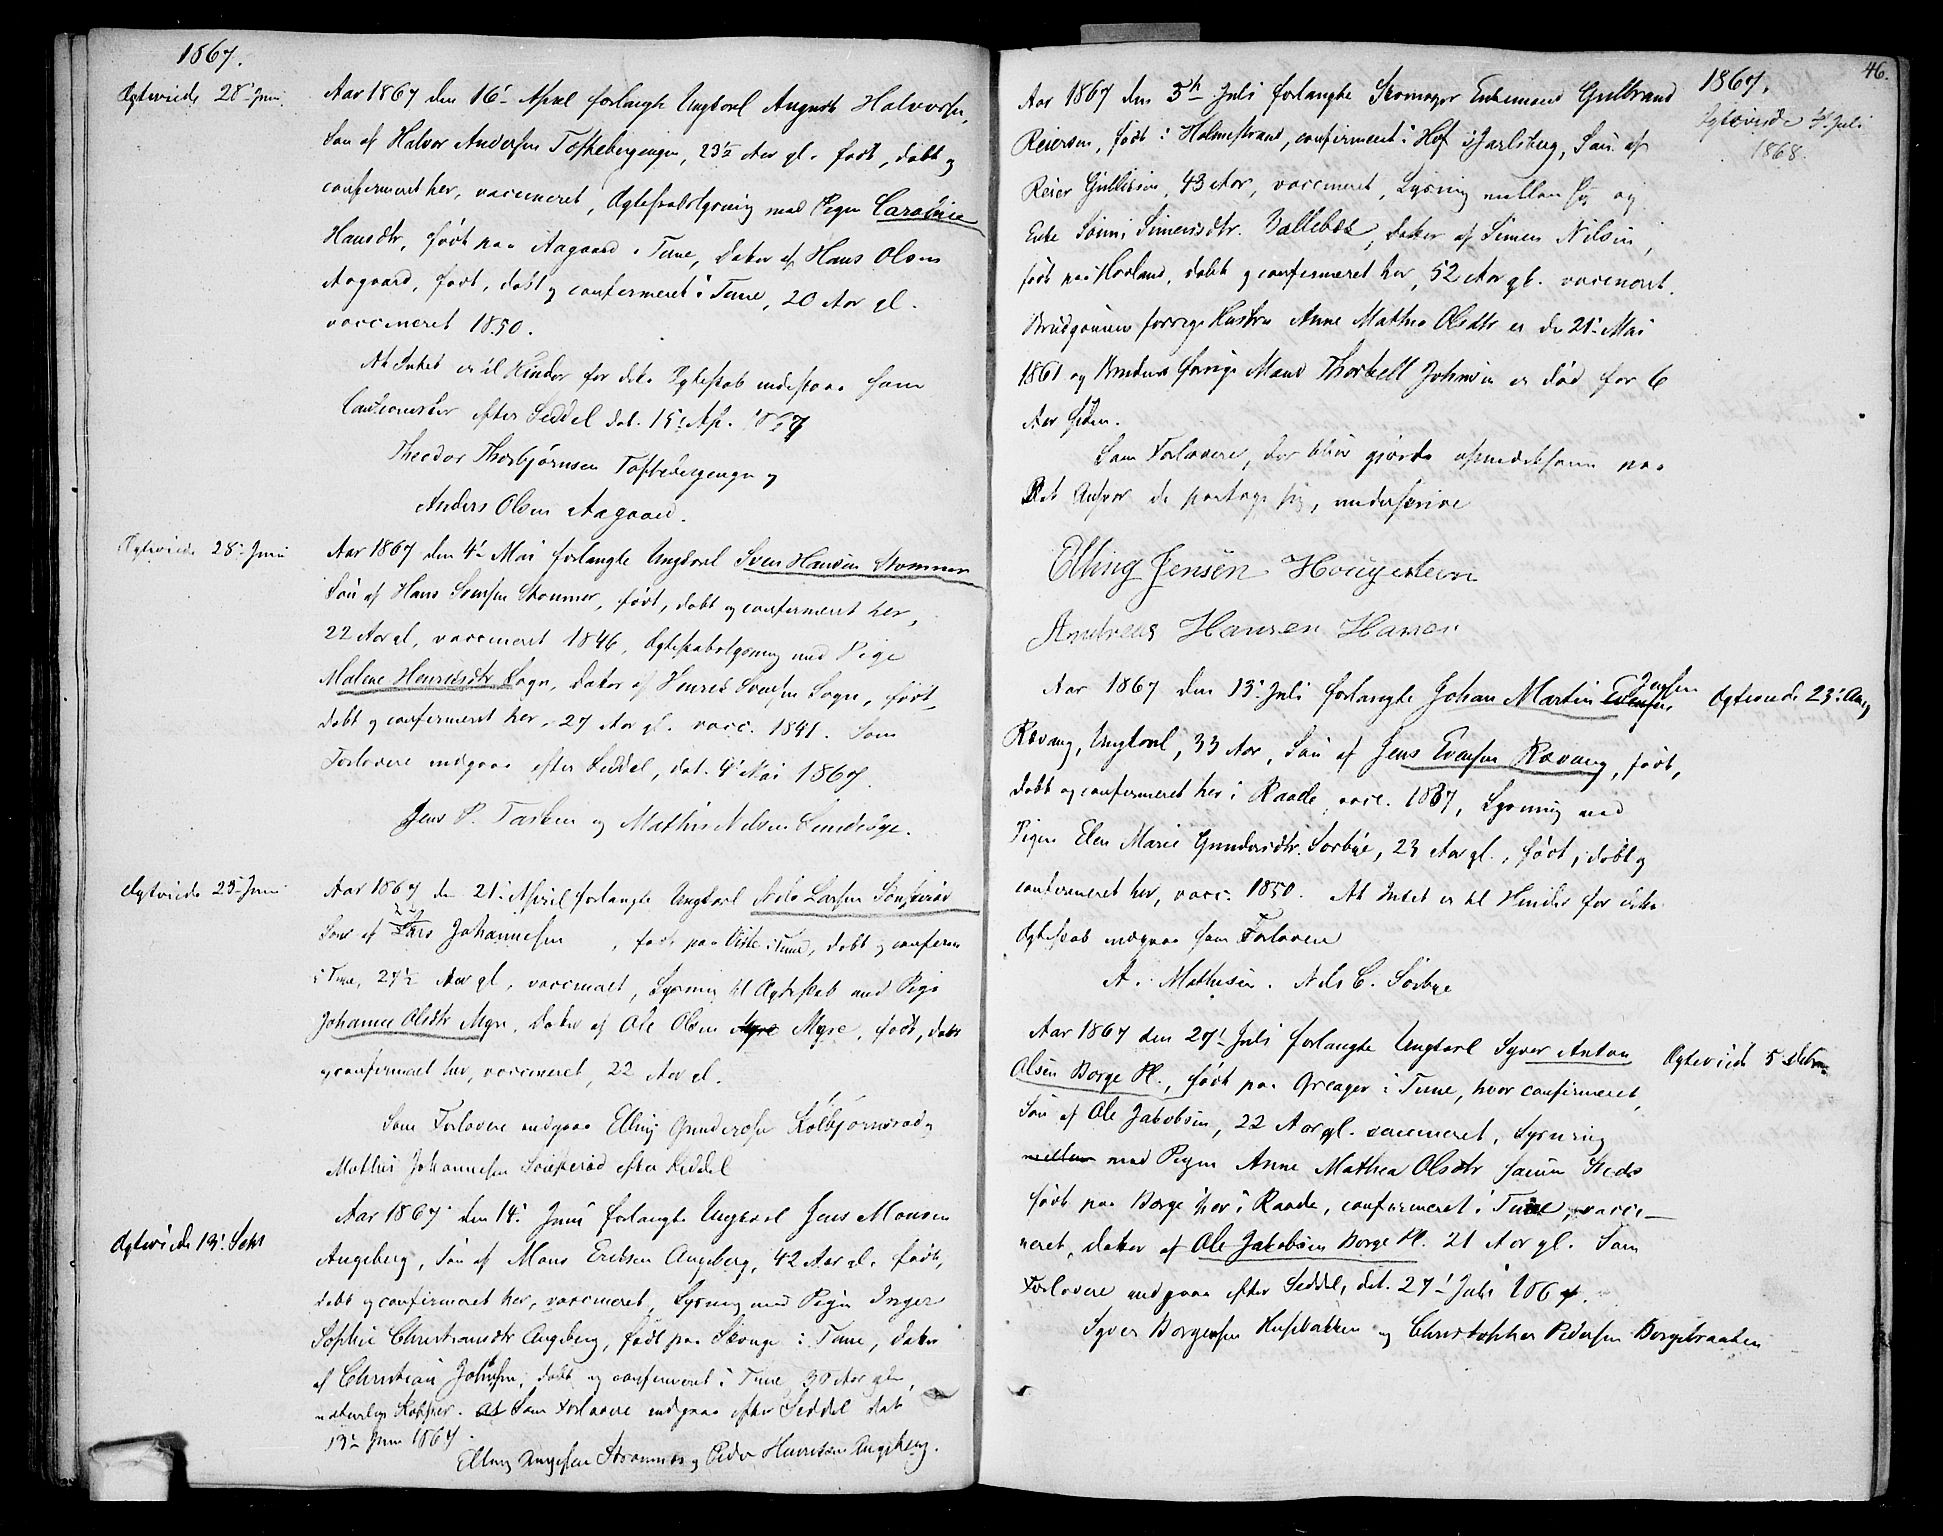 1867.
Ægteviede 28' Juni.
Aar 1867 den 16' April forlangte Ungkarl August Halvorsen,
Søn af Halvor Andersen Tofteberg, 23½ Aar gl. født, døbt og
confirmeret her, vaccineret, Ægteskabslysning med Pigen Caroline
Hansdtr, født paa Aagaard i Tune, Datter af Hans Olsen
Aagaard, født, døbt og confirmeret i Tune, 20 Aar gl.
vaccineret 1850.
At Intet er til Hinder for dette Ægteskab indestaae som
Cautionister efter Seddel dat. 15' Ap. 1867
Theodor Thorbjørnsen og
Anders Olsen Aagaard.
Ægteviede 28' Juni
Aar 1867 den 4' Mai forlangte Ungkarl Sven Hansen Stommer
Søn af Hans Svensen Stommer, født, døbt og confirmeret her,
22 Aar gl, vaccineret 1846, Ægteskabslysning med Pige
Malene Henriksdtr Sogn, Datter af Henrik Svensen Sogn, født,
døbt og confirmeret her, 27 Aar gl. vacc. 1841. Som
Forlovere indgaae efter Seddel, dat. 4' Mai 1867.
Jens P. og Mathis Nilsen
Ægteviede 23' Juni
Aar 1867 den 21' April forlangte Ungkarl Nils Larsen
Søn af Lars Johannesen, født paa Viste i Tune, døbt og confirm
i Tune, 27½ Aar gl, vaccineret, Lysning til Ægteskab med Pige
Johanne Olsdtr Myre, Datter af Ole Olsen Myre Myre, født, døbt
og confirmeret her, vaccineret, 22 Aar gl.
Som Forlovere indgaae Elling Gundersen Kolbjørnsrød og
Mathis Johannesen efter Seddel
Ægteviede 13' Sept
Aar 1867 den 14' Juni forlangte Ungkarl Jens Monsen
Augeberg, Søn af Mons Eriksen Augeberg, 42 Aar gl. født,
døbt og confirmeret her, vaccineret, Lysning med Pigen Inger
Sophie Christiansdtr Augeberg, født paa i Tune, Datter
af Christian Johnsen, døbt og confirmeret i Tune, 30 Aar gl.,
naturlige Kopper. at Som Forlovere indgaae efter Seddel dat
13' Juni 1867.
Elling og Peder Henriksen Augeberg.
46.
1867.
Ægteviede Juli
1868.
Aar 1867 den 5te Juli forlangte Skomager Enkemand Gulbrand
Reiersen, født i Holmestrand, confirmeret i Hof i Jarlsberg, Søn af
Reier Gullixen, 43 Aar, vaccineret, Lysning mellem sig og
Enke Simensdtr. Vallebæk, Datter af Simen Nilsen,
født paa Hovland, døbt og confirmeret her, 52 Aar gl. vaccineret.
Brudgommens forrige Hustru Anne Mathea Olsdtr er død 21' Mai
1861 og Brudens forrige Mand Thorkell Johnsen er død for 6
Aar siden.
Som Forlovere, der blive gjorte opmærksomme paa
det Ansvar de paatage sig, underskrive
Elling Jensen Hougesteen
Andreas Hansen Haven
Aar 1867 den 13' Juli forlangte Johan Martin Evensen Jensen
Ægteviede 23' Aug
Røvang, Ungkarl, 33 Aar, Søn af Jens Evensen Røvang, født,
døbt og confirmeret her i Raade, vacc. 1837, Lysning med
Pigen Elen Marie Gundersdtr. Sørbye, 23 Aar gl., født, døbt og
confirmeret her, vacc. 1850. At Intet er til Hinder for dette
Ægteskab indgaae som Forlovere
A. Mathisen. Nils C. Sørbye
Aar 1867 den 27' Juli forlangte Ungkarl Syver Anton
Ægteviede 5
Olsen Borge Pl., født paa Greager i Tune, hvor confirmeret,
Søn af Ole Jakobsen, 22 Aar gl. vaccineret, Lysning
mellem med Pigen Anne Mathea Olsdtr samme Steds
født paa Borge her i Raade, confirmeret i Tune, vacci-
neret, Datter af Ole Jakobsen Borge Pl. 21 Aar gl. Som
Forlovere indgaae efter Seddel, dat. 27' Juli 1867.
Syver Borgersen Husebakken og Christopher Pedersen Borgebraaten